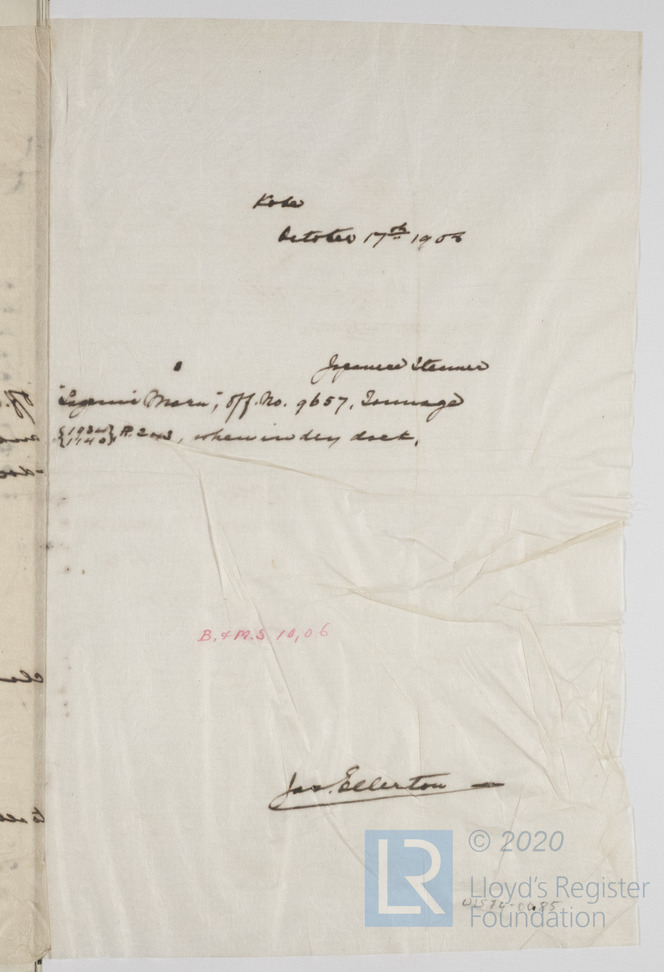 Kobe
October 17th 1906
Japanese Steamer
Maru", Off. No. 9657, Tonnage
R. 243, when in dry dock.
B. & M.S 10,06
Jas. Ellerton
© 2020
LR
Lloyd's Register
Foundation